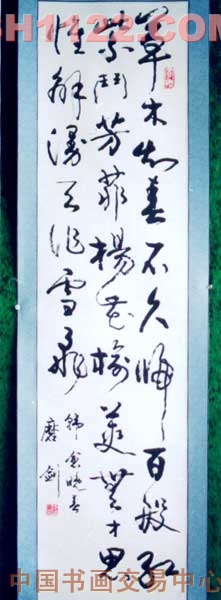 SH1122.COM
草木知春不久歸百般紅
紫鬥芳菲楊花榆莢無才思
惟解漫天作雪飛
韓愈晚春
磨劍
中国书画交易中心